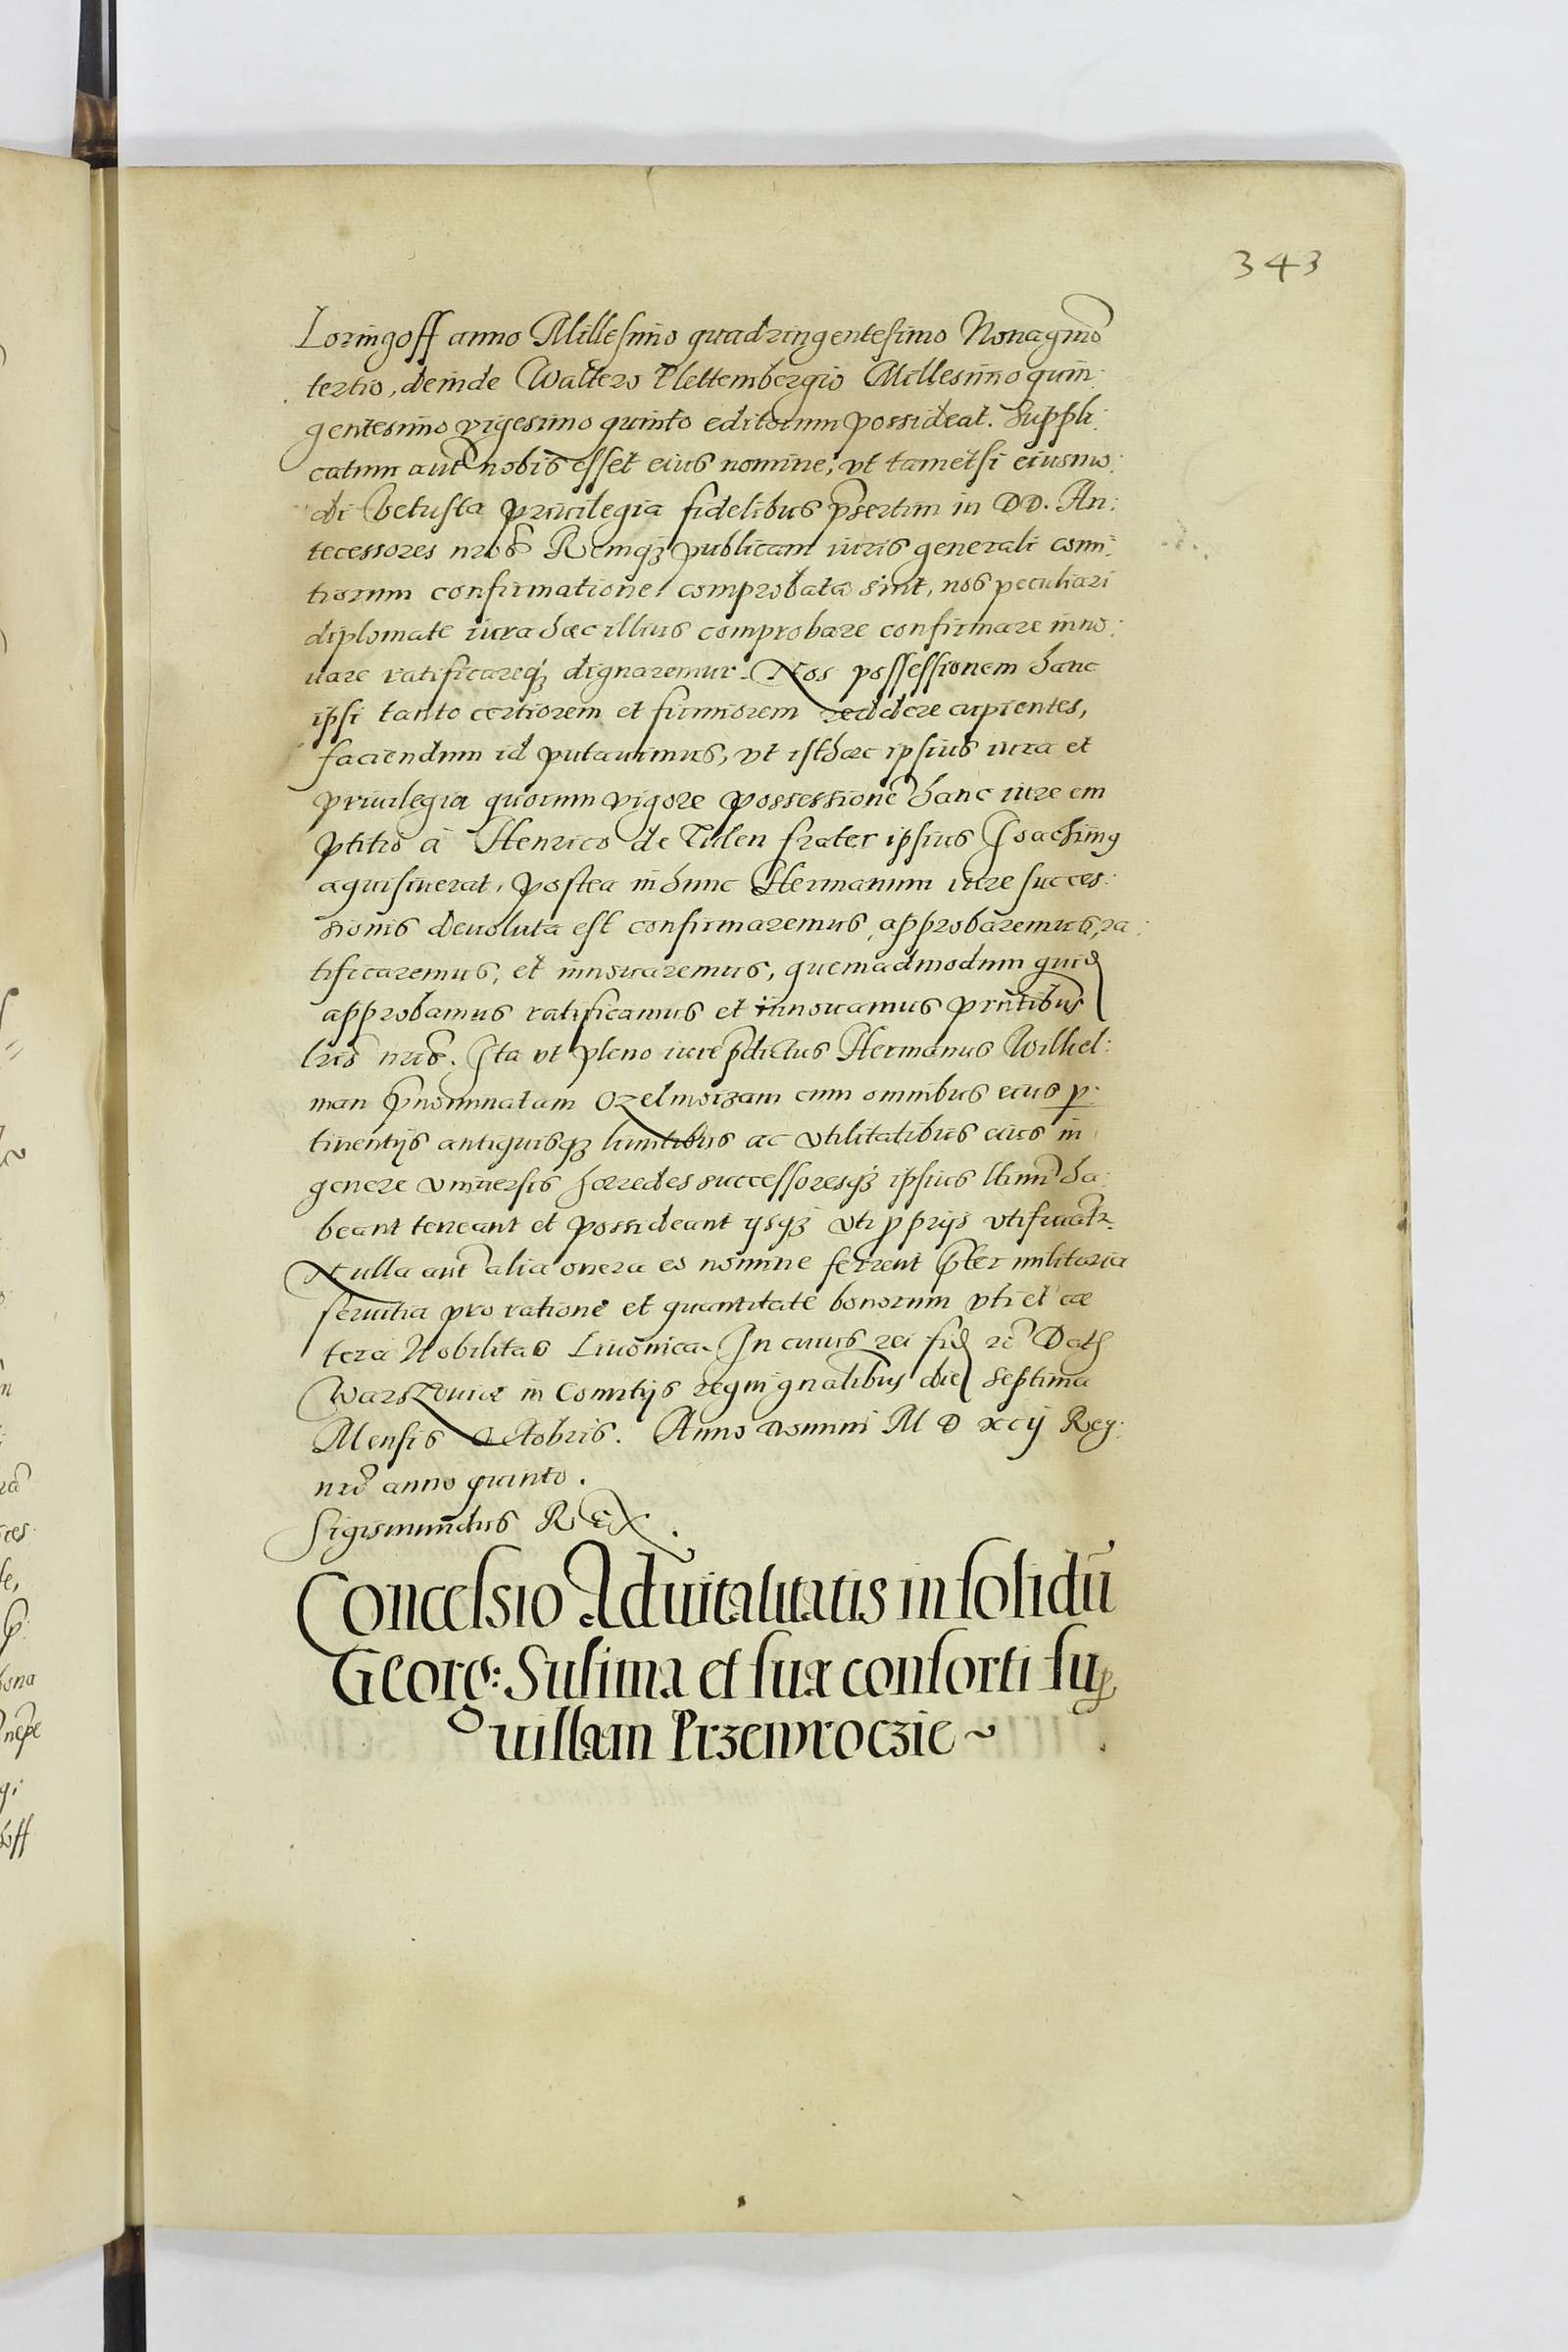 343
Loringoff anno Millesimo quadringentesimo Nonagmo
tertio, deinde Waltero Plettembergio Millesimo quin:
gentesimo vigesimo quinto editorum possideat. Suppli:
catum aut nobis esset eius nomine, vt tametsi eiusmo:
di vetusta priuilegia fidelibus psertim in DD. An:
tecessores nros Remqz publicam iuris generali comi:
tiorum confirmatione comprobata sint, nos peculiari
diplomate iura haec illius comprobare confirmare inno:
uare ratificareqz dignaremur. Nos possessionem hanc
ipsi tanto certiorem et firmiorem reddere cupientes,
faciendum id putauimus, vt isthaec ipsius iura et
priuilegia quorum vigore possessionē hanc iure em
ptitio à Henrico de Tiden frater ipsius Joachimg
aquisiuerat, postea in hunc Hermanum iure succes:
sionis deuoluta est confirmaremus, approbaremus, ra:
tificaremus, et innouaremus, quemadmodum quid
approbamus ratificamus et innouamus pntibus
lris nris. Ita vt pleno iure pdictus Hermanus Wilhel:
man pnominatam Ozelmoizam cum omnibus eius p:
tinentijs antiquisqz limitibus ac vtilitatibus eius in
genere vniuersis haeredes successoresqz ipsius ltimi ha:
beant teneant et possideant ijsqz vti pprijs vtifruatr.
Nulla aut alia onera eo nomine ferrent pter militaria
seruitia pro ratione et quantitate bonorum vti et cae
tera Nobilitas Liuonica. In cuius rei fid rc Dath
Warszouiae in Comitijs regni gnalibus die septima
Mensis Octobris. Anno Domini M D xcij Reg:
nri anno quinto.
Sigismundus REX.
Concessio Aduitalitatis in solidū
Georg: Susima et suae consorti sup
uillam Przewroczie ~